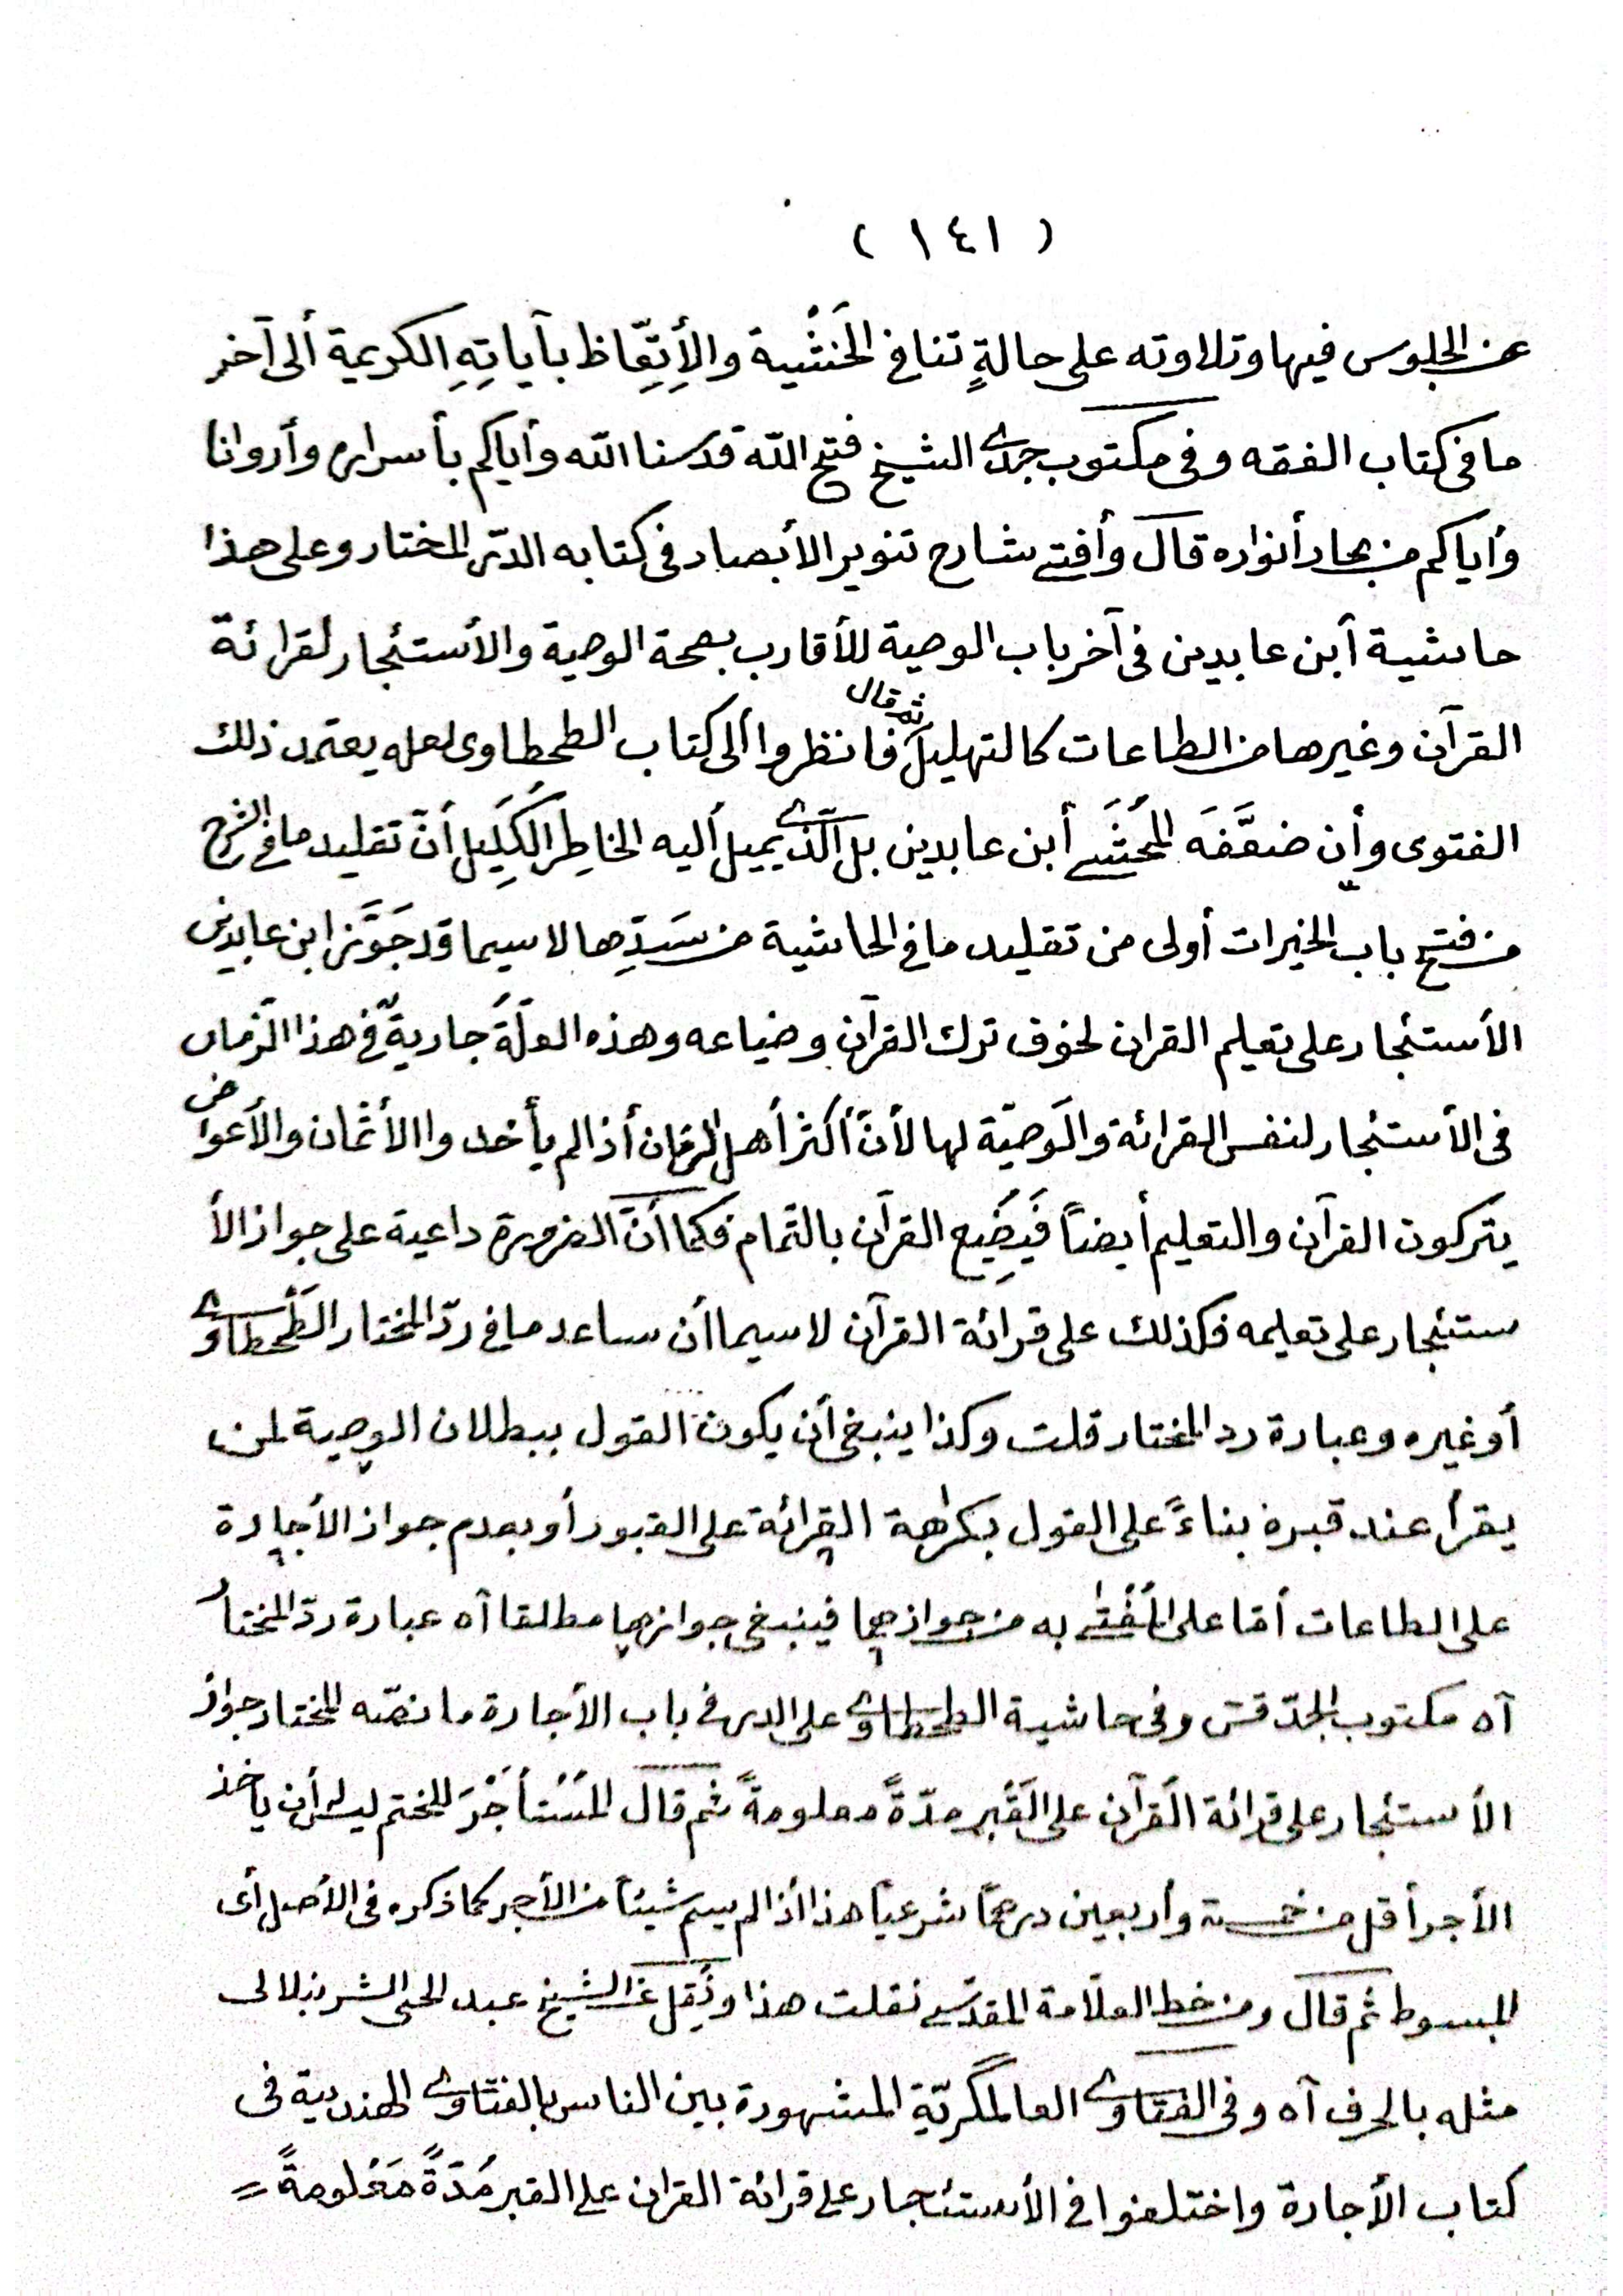 ( ١٤١ )
عن الجلوس فيها وتلاوته على حالةٍ تنافى الخَشْية والأِتِّعَاظ بآياتِهِ الكريمة ألى آخر
ما فى كتاب الفقه وفى مكتوب جدى الشيخ فتح الله قدسنا الله وأياكم بأسراره وأروانا
وأياكم من بحار أنواره قال وأفتى شارح تنوير الأبصار فى كتابه الدّر المختار وعلى هذا
حاشية أبن عابدين فى آخر باب الوصية للأقارب بصحة الوصية والأستئجار لقرائة
القرآن وغيرها من الطاعات كالتهليل ثم قال فانظروا ألى كتاب الطحطاوى لعله يعتمد ذلك
الفتوى وأن ضعَّفَه المُحَشّى أبن عابدين بل الّذى يميل أليه الخاطِر الكَلِيل أنّ تقليد ما فى الشرح
من فتح باب الخيرات أولى من تقليد ما فى الحاشية من سَدِّها لا سيما قد جَوَّز ابن عابدين
الأستئجار على تعليم القران لخوف ترك القرآن وضياعه وهذه العلّة جارية فى هذا الزمان
فى الأستئجار لنفس القرائة والوصيّة لها لأنّ أكثر أهل الزمان أذا لم يأخدوا الأثمان والأعواض
يتركون القرآن والتعليم أيضاً فَيَضِيع القرآن بالتّمام فكما أنّ الضرورة داعية على جواز الأ
ستئجار على تعليمه فكذلك على قرائة القرآن لا سيما أن ساعد ما فى ردّ المختار الطّحطاوى
أو غيره وعبارة رد المختار قلت وكذا ينبغى أن يكون القول ببطلان الوصية لمن
يقرأ عند قبره بناءً على القول بكراهة القرائة على القبور أو بعدم جواز الأجارة
على الطاعات أمّا على المُفْتٰى به من جوازهما فينبغى جوازهما مطلقا آه عبارة ردّ المختار
آه مكتوب الجدّ قس وفى حاشية الطحطاوى على الدر فى باب الأجارة ما نصّه المختار جواز
الأستئجار على قرائة القرآن على القَبْر مدّةً معلومةً ثم قال المُسْتأجَرَ للختم ليس له أن يأخذ
الأجر أقل من خمسة وأربعين درهمًا شرعيّا هذا أذا لم يسم شيئاً من الأجر كما ذكره فى الأصل أى
المبسوط ثم قال ومن خط العلّامة المقدّسى نقلت هذا ونُقِل عن الشيخ عبد الحى الشرنبلالى
مثله بالحرف آه وفى الفتاوى العالمگريّة المشهورة بين الناس بالفتاوى الهندية فى
كتاب الأجارة واختلفوا فى الأستئجار على قرائة القران على القبر مُدّةً مَعْلومةً =